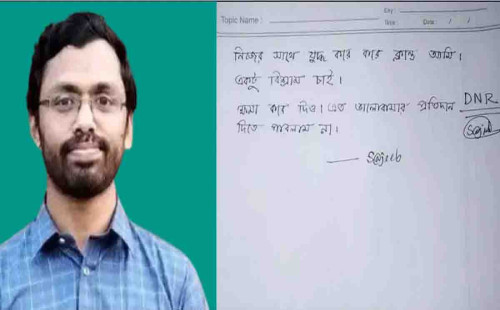 Topic Name :
Day :
Time : Date : / /
নিজের সাথে যুদ্ধ করে করে ক্লান্ত আমি।
একটু বিশ্রাম চাই।
ক্ষমা করে দিও। এত ভালোবাসার প্রতিদান
দিতে পারলাম না।
DNR
Sajeeb
— Sajeeb